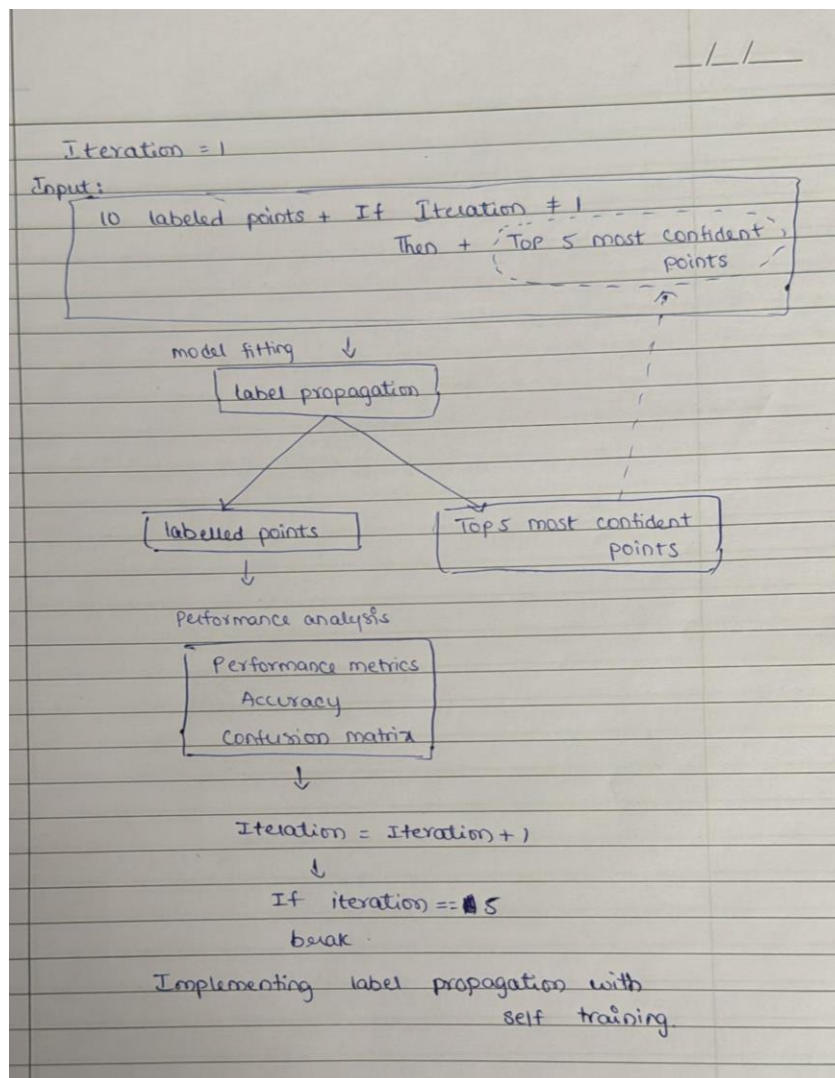 _/_/_
Iteration = 1
Input:
10 labeled points + If Iteration ≠ 1
Then + Top 5 most confident
points
model fitting ↓
label propagation
labelled points
Top 5 most confident
points
↓
Performance analysis
Performance metrics
Accuracy
Confusion matrix
↓
Iteration = Iteration + 1
↓
If iteration == 5
break.
Implementing label propagation with
self training.